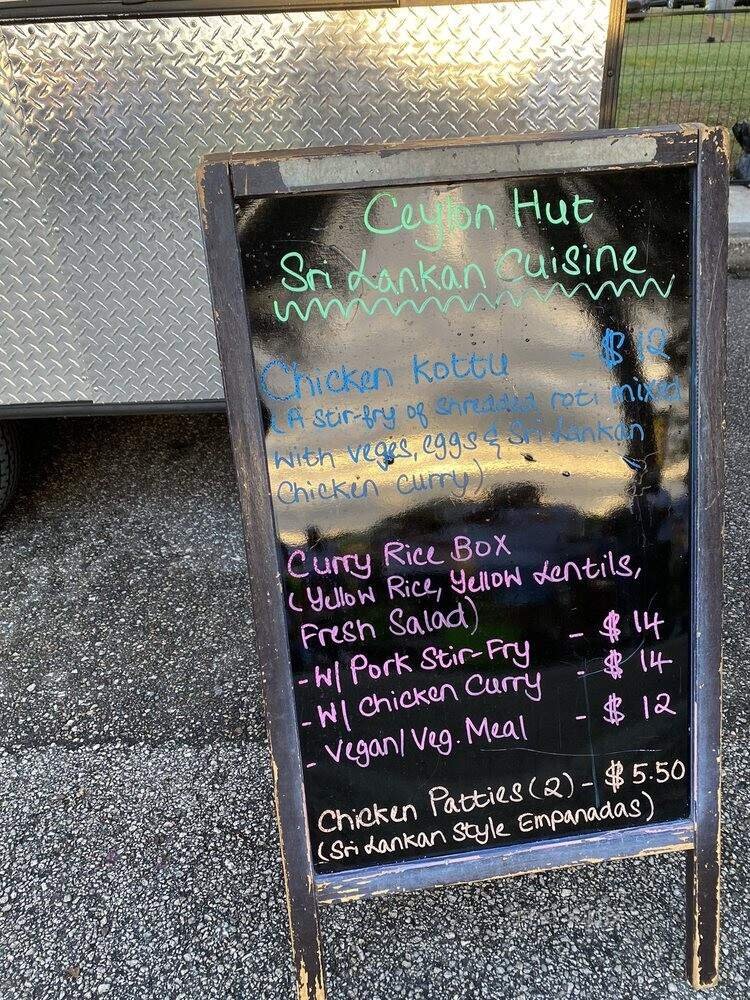 Ceylon Hut
Sri Lankan Cuisine
Chicken Kottu - $ 12
(A stir-fry of shredded roti mixed
with veges, eggs & Sri Lankan
Chicken curry)
Curry Rice Box
(Yellow Rice, Yellow Lentils,
Fresh Salad)
- W/ Pork Stir-Fry - $ 14
- W/ Chicken Curry - $ 14
- Vegan/Veg. Meal - $ 12
Chicken Patties (2) - $ 5.50
(Sri Lankan Style Empanadas)